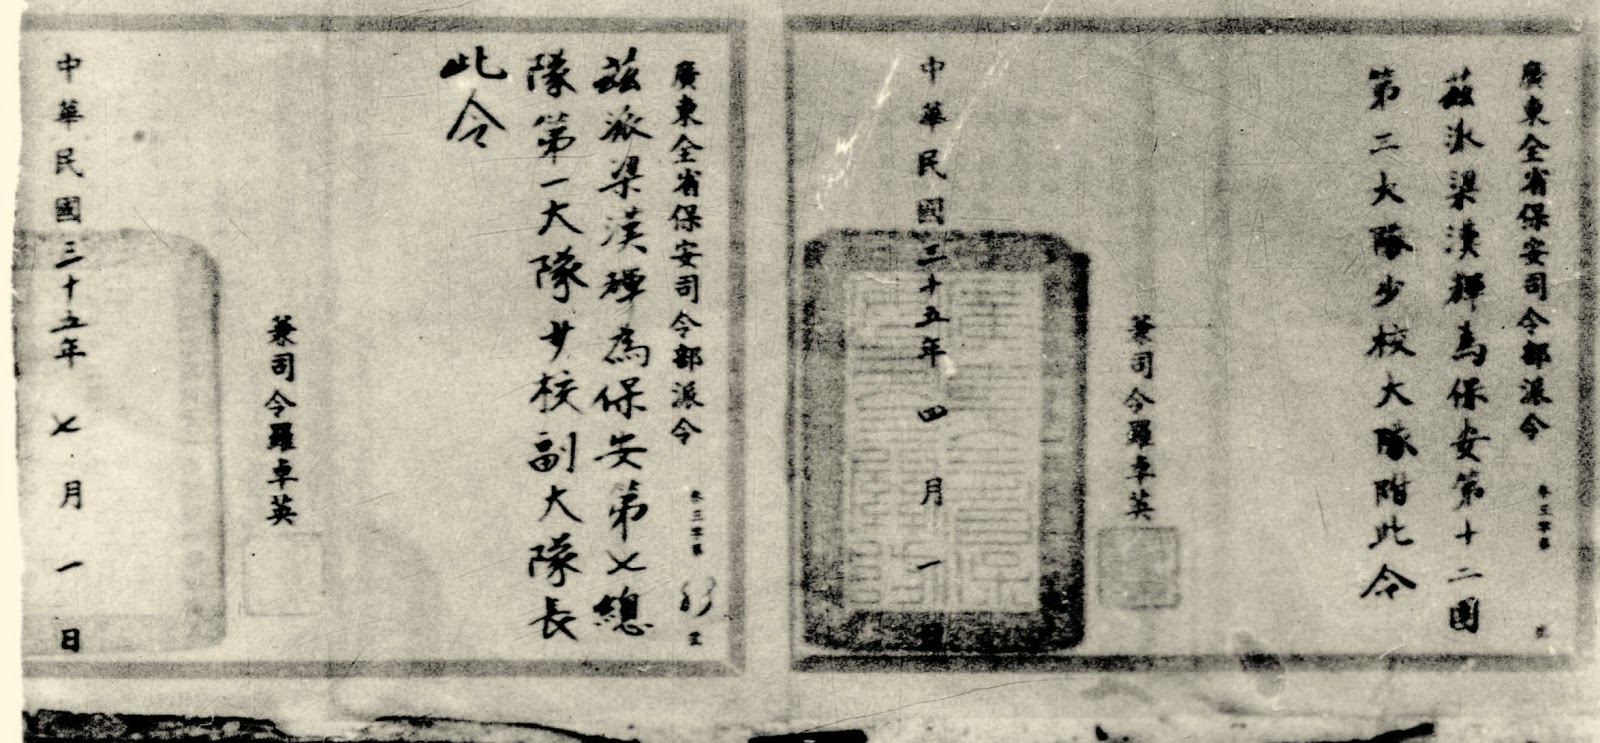 廣東全省保安司令部派令
茲派梁漢輝為保安第十二團
第三大隊少校大隊附此令
兼司令羅卓英
中華民國三十五年四月一日
廣東全省保安司令部派令 叁三字第83號
茲派梁漢輝為保安第七總
隊第一大隊少校副大隊長
此令
兼司令羅卓英
中華民國三十五年七月一日